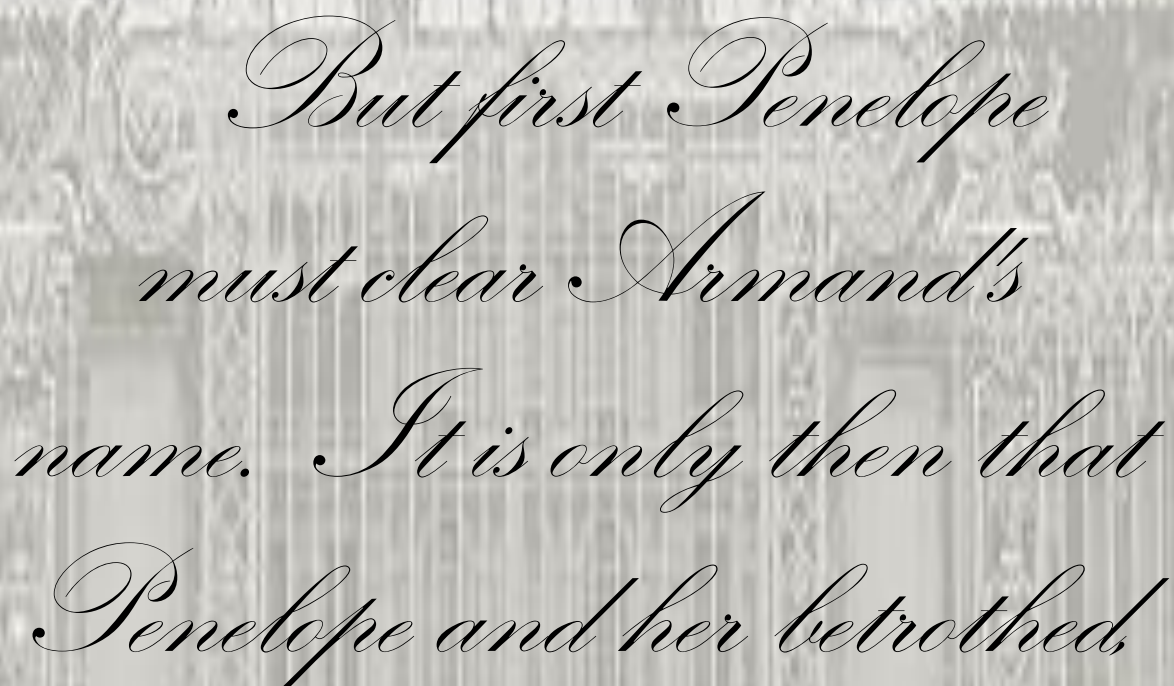 But first Penelope
must clear Armand's
name. It is only then that
Penelope and her betrothed,